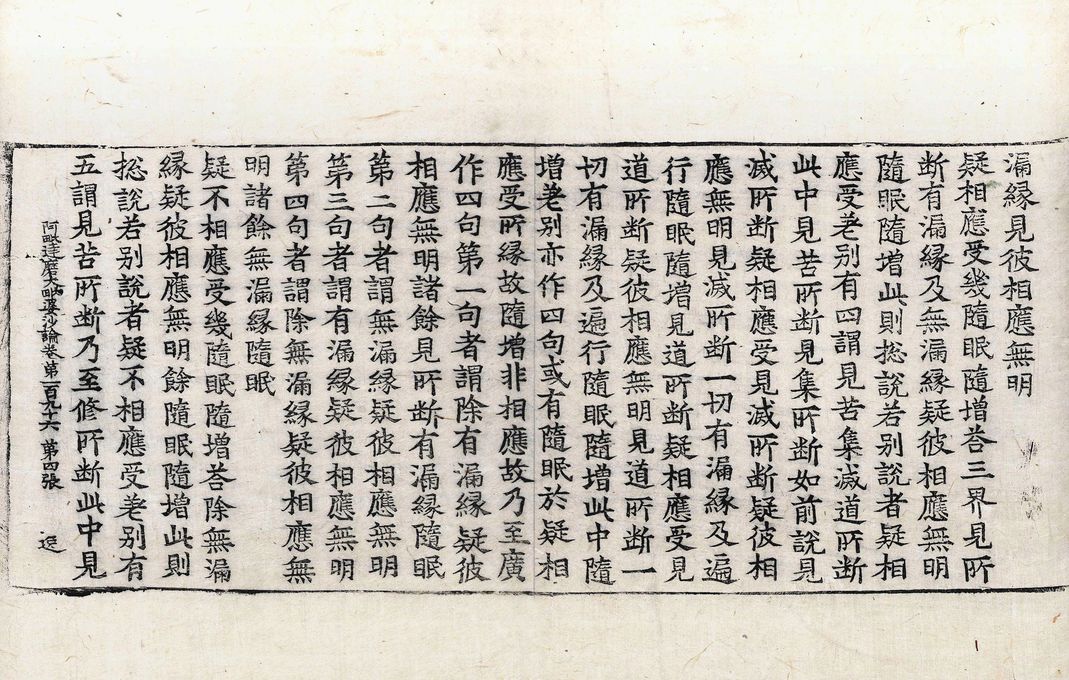 漏緣見彼相應無明
疑相應受幾隨眠隨增荅三界見所
断有漏緣及無漏緣疑彼相應無明
隨眠隨增此則捴說若别說者疑相
應受差别有四謂見苦集滅道所断
此中見苦所断見集所断如前說見
滅所断疑相應受見滅所断疑彼相
應無明見滅所断一切有漏緣及遍
行隨眠隨增見道所断疑相應受見
道所断疑彼相應無明見道所断一
切有漏緣及遍行隨眠隨增此中隨
增差别亦作四句或有隨眠於疑相
應受所緣故隨增非相應故乃至廣
作四句第一句者謂除有漏緣疑彼
相應無明諸餘見所断有漏緣隨眠
第二句者謂無漏緣疑彼相應無明
第三句者謂有漏緣疑彼相應無明
第四句者謂除無漏緣疑彼相應無
明諸餘無漏緣隨眠
疑不相應受幾隨眠隨增荅除無漏
緣疑彼相應無明餘隨眠隨增此則
捴說若别說者疑不相應受差别有
五謂見苦所断乃至修所断此中見
阿毗達磨大毗婆沙論卷第一百九十六 第四張 逆